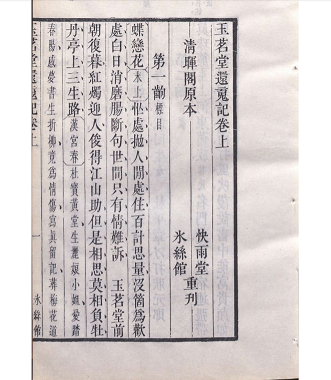 玉茗堂還䰟記卷上
清暉閣原本
快雨堂
氷絲館
重刊
第一齣 標目
蝶戀花 末上 忙處拋人閒處住百計思量沒箇爲歡
處白日消磨腸斷句世間只有情難訴 玉茗堂前
朝復暮紅燭迎人俊得江山助但是相思莫相負牡
丹亭上三生路 漢宮春 杜寶黃堂生麗娘小姐愛踏
春陽感夢書生折柳竟爲情傷寫眞留記葬梅花道
玉茗堂還䰟記卷上 一 氷絲館